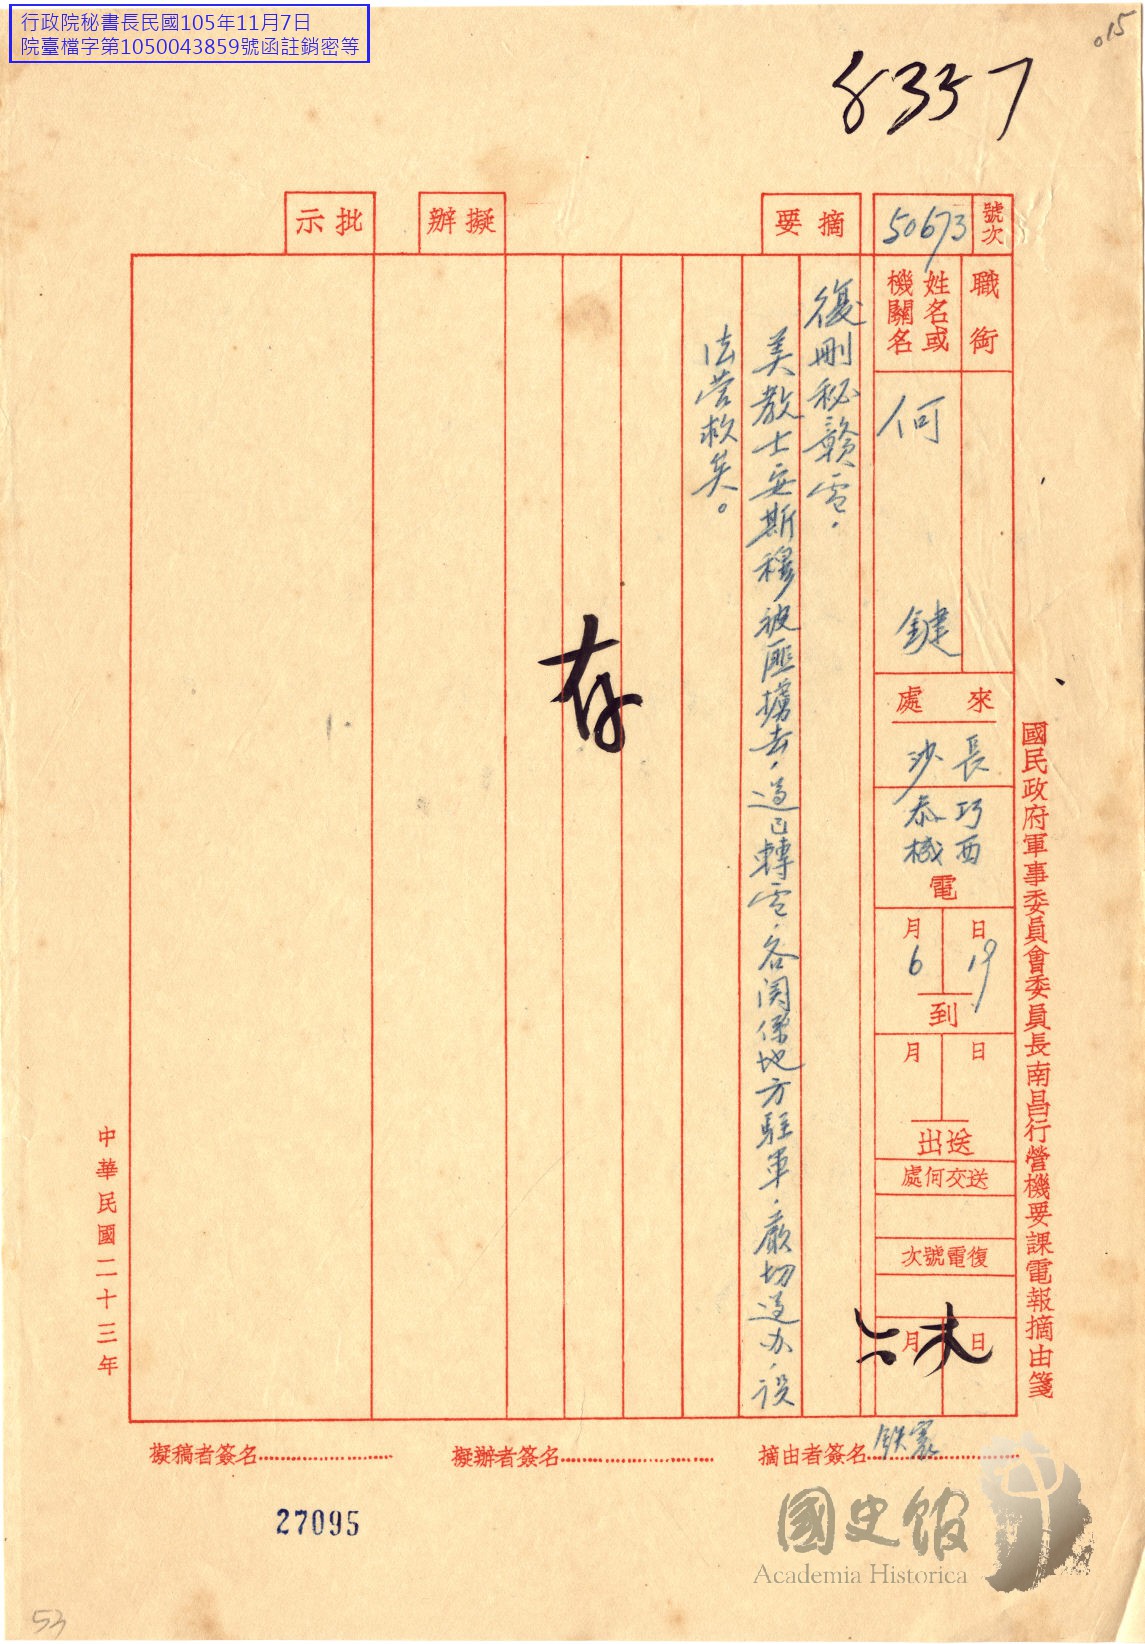 行政院秘書長民國105年11月7日
院臺檔字第1050043859號函註銷密等
015
8357
國民政府軍事委員會委員長南昌行營機要課電報摘由箋
號次
50673
職銜
姓名或
機關名
何鍵
來處
長沙
巧酉
機
電
6月
19日
到
月
日
送出
送交何處
復電號次
月
日
摘要
復刪秘贛電.
美教士安斯穆被匪擄去,遵已轉電.各関係地方駐軍.嚴切遵办,設
法营救矣。
擬辦
存
批示
中華民國二十三年
摘由者簽名
擬辦者簽名
擬稿者簽名
27095
53
國史館
Academia Historica